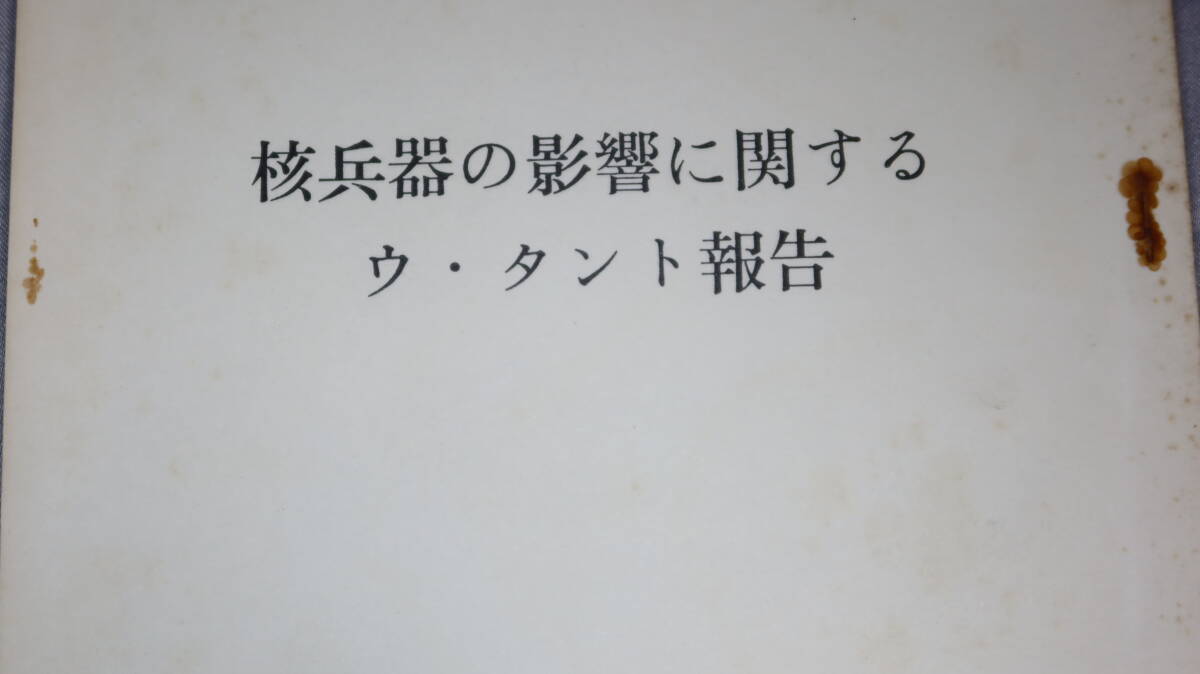 核兵器の影響に関する
ウ・タント報告